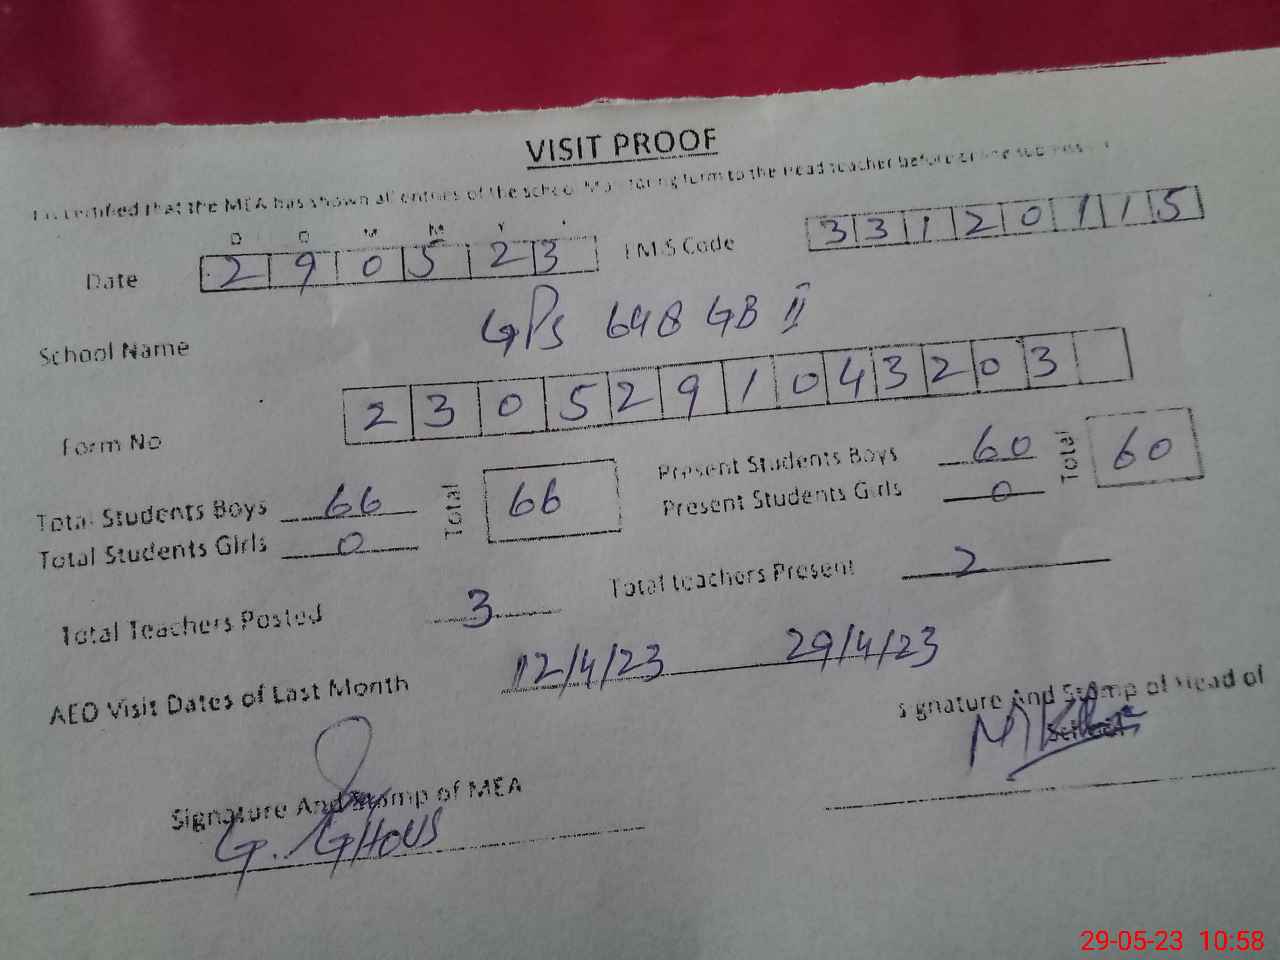 VISIT PROOF
It is certified that the MEA has shown all entries of the school Monitoring form to the Head teacher before online submission
D D M M Y
Date 2 9 0 5 2 3 EMIS Code 3 3 1 2 0 1 1 5
School Name GPS 648 GB II
Form No 2 3 0 5 2 9 1 0 4 3 2 0 3
Total Students Boys 66 Total 66 Present Students Boys 60 Total 60
Total Students Girls 0 Present Students Girls 0
Total Teachers Posted 3 Total teachers Present 2
AEO Visit Dates of Last Month 12/4/23 29/4/23
Signature And Stamp of MEA Signature And Stamp of Head of
School
G. GHOUS
29-05-23 10:58